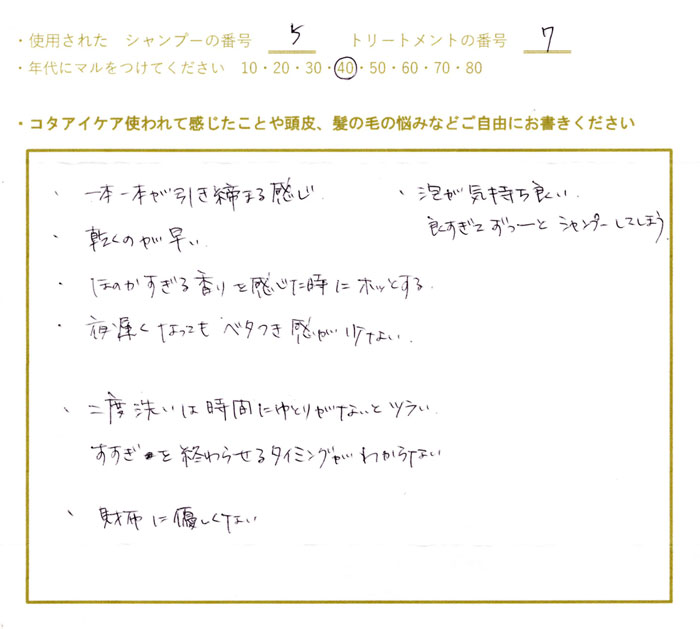 ・使用された シャンプーの番号 5 トリートメントの番号 7
・年代にマルをつけてください 10・20・30・40・50・60・70・80
・コタアイケア使われて感じたことや頭皮、髪の毛の悩みなどご自由にお書きください
・一本一本が引き締まる感じ
・乾くのが早い
・ほのかすぎる香りを感じた時にホッとする
・夜遅くなってもベタつき感が少ない
・泡が気持ち良い
良すぎてずっーとシャンプーしてしまう
・二度洗いは時間にゆとりがないとツラい
すすぎを終わらせるタイミングがわからない
・財布に優しくない